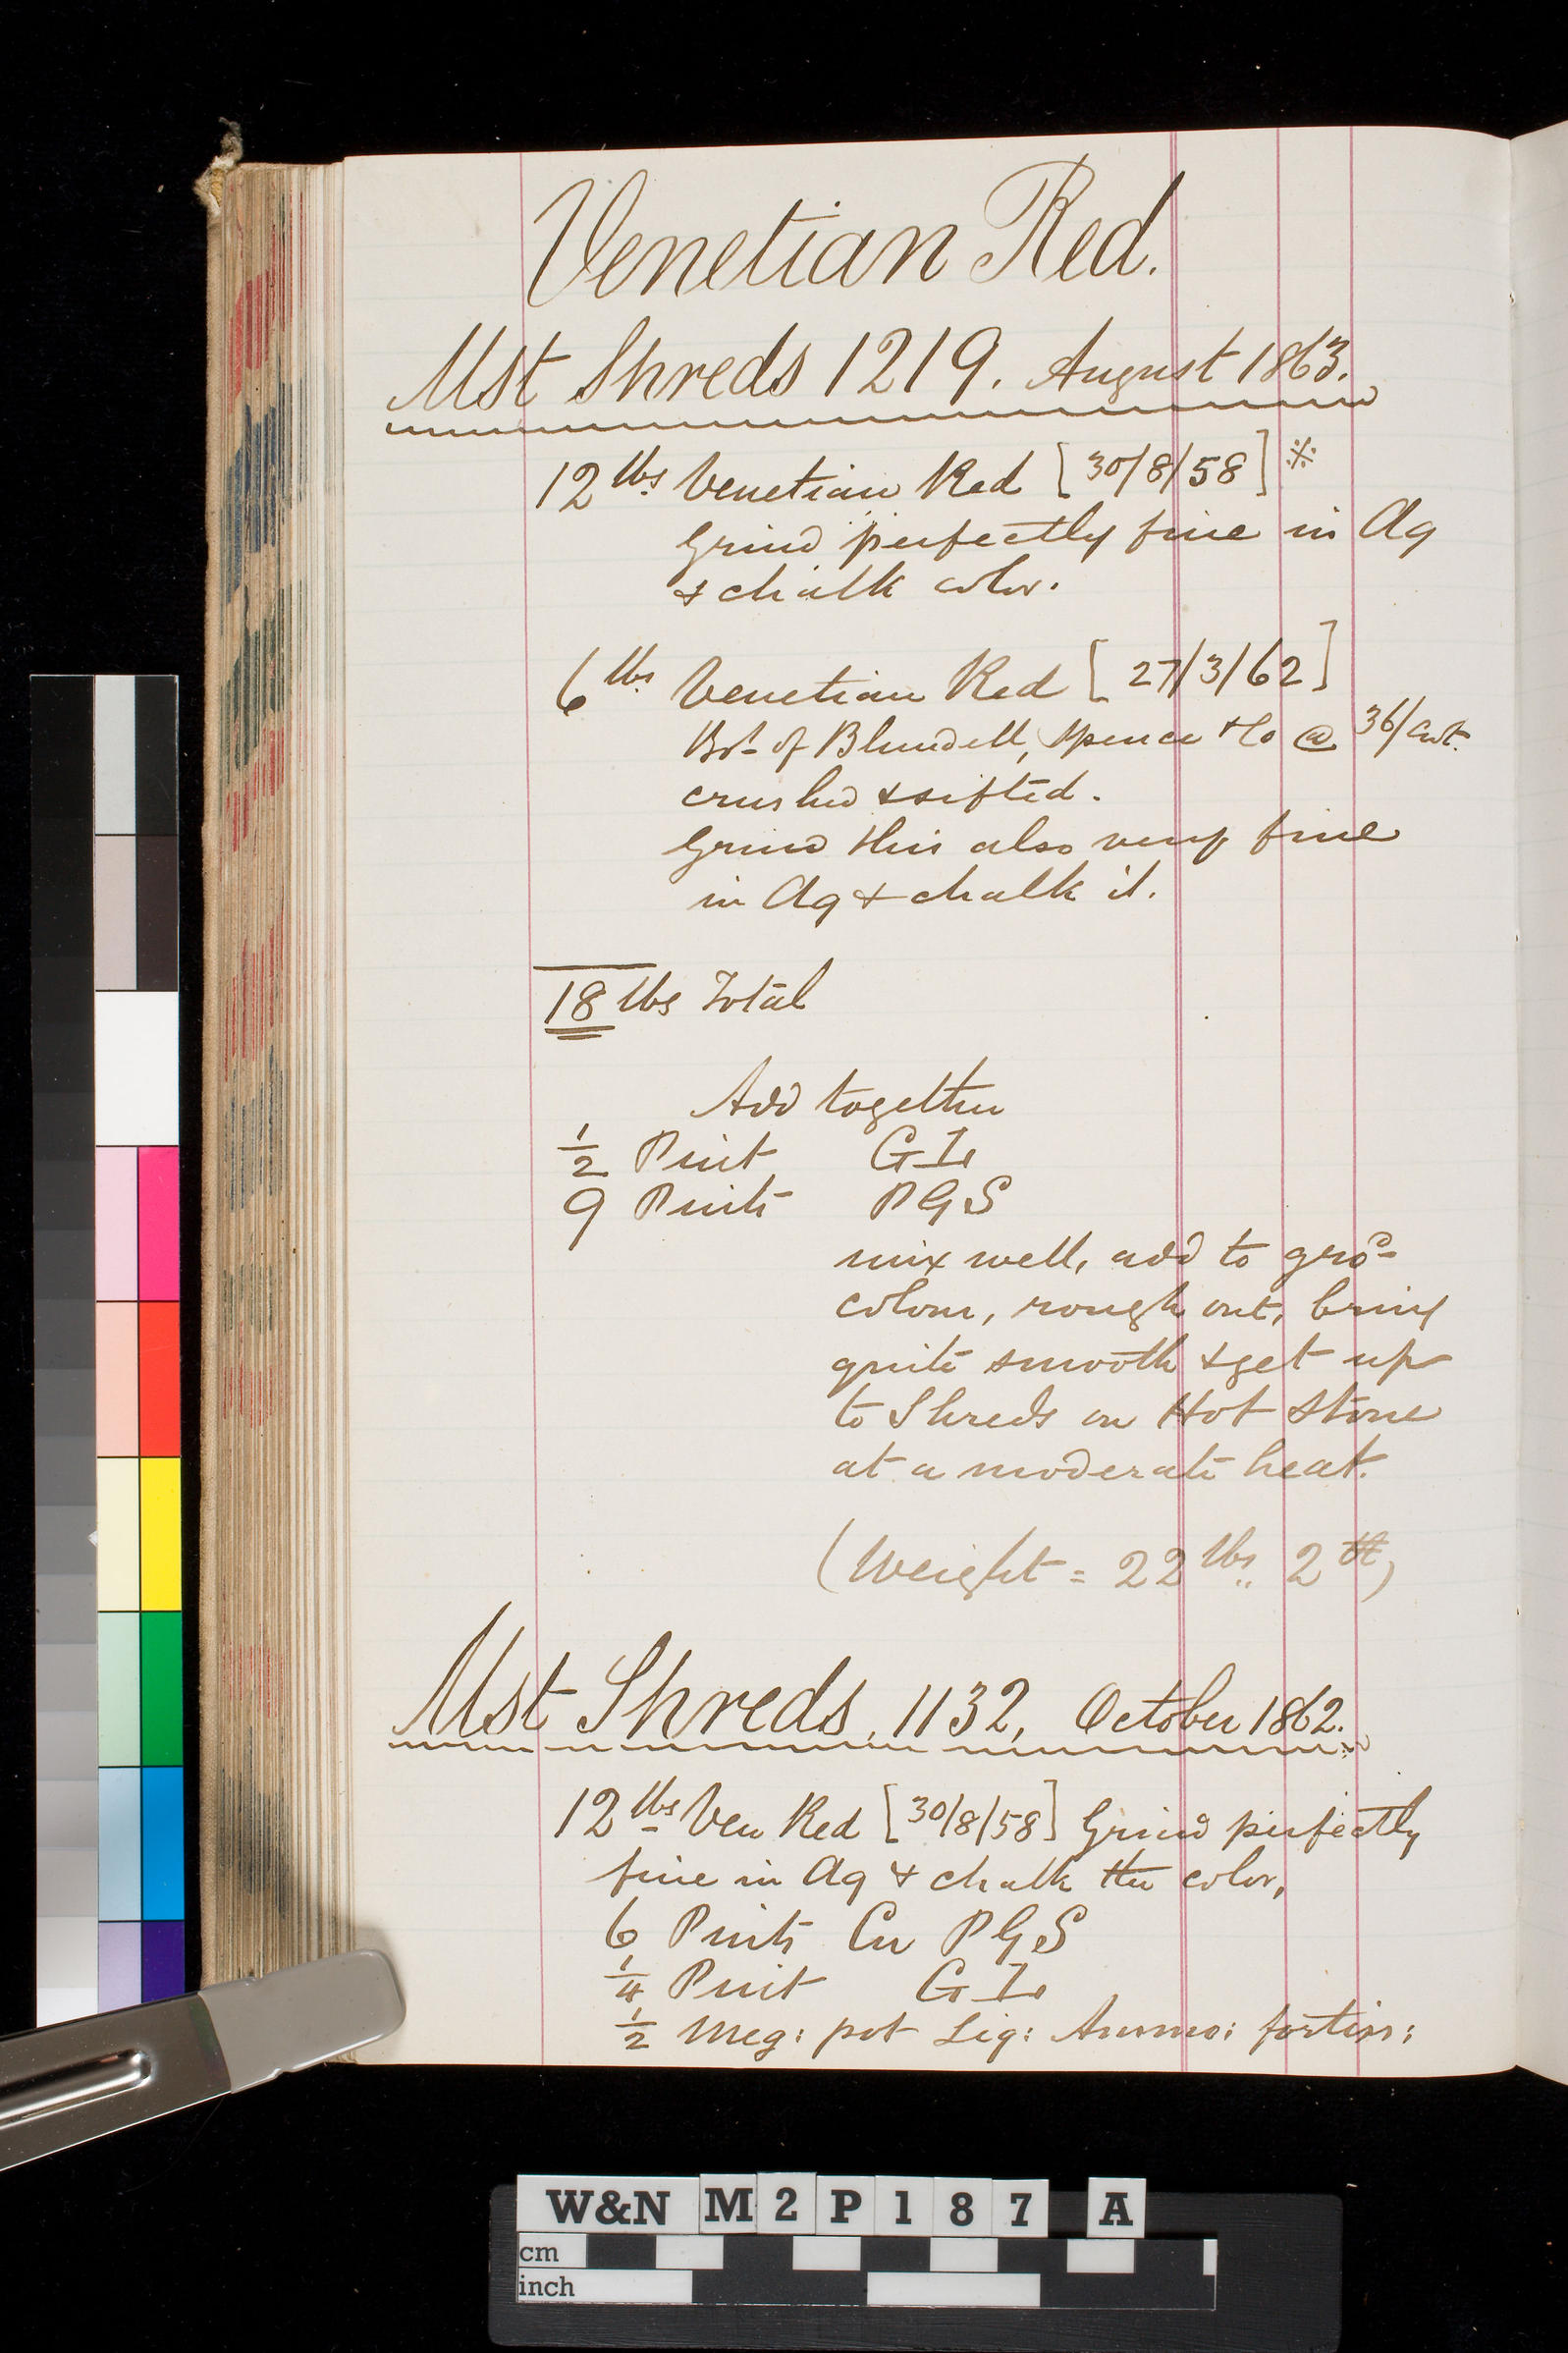 Venetian Red.
Mst Shreds 1219. August 1863.
12 lbs Venetian Red [30/8/58] ※
Grind perfectly fine in Aq
& chalk color.
6 lbs Venetian Red [27/3/62]
Bot of Blundell, Spence & Co @ 36/ Cwt.
crushed & sifted.
Grind this also very fine
in Aq & chalk it.
18 lbs Total
Add together
1/2 Pint G I
9 Pints P G S
mix well, add to grod
colour, rough out, bring
quite smooth & get up
to Shreds on Hot Stone
at a moderate heat.
(Weight = 22 lbs .. 2
Mst Shreds. 1132, October 1862.
12 lbs Ven Red [30/8/58] Grind perfectly
fine in Aq & chalk the color,
6 Pints Cn P G S
1/4 Pint G I
1/2 Meg: pot Liq: Ammo: fortiss:
W&N M2P187 A
cm
inch